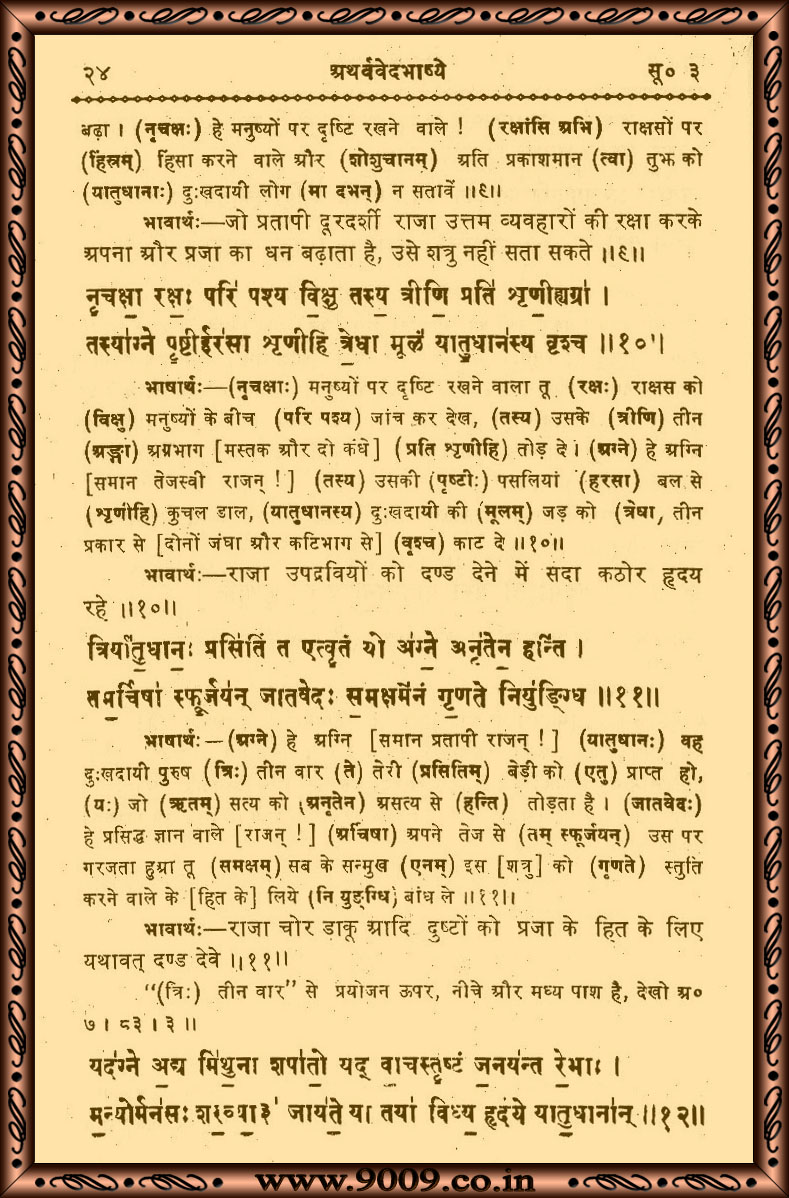 २४ अथर्ववेदभाष्ये सू० ३
बढ़ा । (नृचक्षः) हे मनुष्यों पर दृष्टि रखने वाले ! (रक्षांसि अभि) राक्षसों पर
(हिंस्रम्) हिंसा करने वाले और (शोशुचानम्) अति प्रकाशमान (त्वा) तुझ को
(यातुधानाः) दुःखदायी लोग (मा दभन्) न सतावें ॥९॥
भावार्थः—जो प्रतापी दूरदर्शी राजा उत्तम व्यवहारों की रक्षा करके
अपना और प्रजा का धन बढ़ाता है, उसे शत्रु नहीं सता सकते ॥९॥
नृ॒चक्षा॒ रक्षः॒ परि॑ पश्य वि॒क्षु तस्य॒ त्रीणि॒ प्रति॑ शृणी॒ह्यग्रा॑ ।
तस्या॑ग्ने पृ॒ष्टीर्हर॑सा शृणीहि त्रे॒धा मूलं॑ यातु॒धान॑स्य वृश्च ॥१०॥
भाषार्थः—(नृचक्षाः) मनुष्यों पर दृष्टि रखने वाला तू (रक्षः) राक्षस को
(विक्षु) मनुष्यों के बीच (परि पश्य) जांच कर देख, (तस्य) उसके (त्रीणि) तीन
(अङ्गा) अग्रभाग [मस्तक और दो कंधे] (प्रति शृणीहि) तोड़ दे । (अग्ने) हे अग्नि
[समान तेजस्वी राजन् !] (तस्य) उसकी (पृष्टीः) पसलियां (हरसा) बल से
(शृणीहि) कुचल डाल, (यातुधानस्य) दुःखदायी की (मूलम्) जड़ को (त्रेधा, तीन
प्रकार से [दोनों जंघा और कटिभाग से] (वृश्च) काट दे ॥१०॥
भावार्थः—राजा उपद्रवियों को दण्ड देने में सदा कठोर हृदय
रहे ॥१०॥
त्रिर्या॑तु॒धानः॒ प्रसि॑तिं त एत्वृ॒तं यो अ॑ग्ने॒ अनृ॑तेन॒ हन्ति॑ ।
तम॒र्चिषा॑ स्फू॒र्जय॑न् जातवेदः सम॒क्षमे॑नं गृण॒ते नियु॑ङ्ग्धि ॥११॥
भाषार्थः—(अग्ने) हे अग्नि [समान प्रतापी राजन् !] (यातुधानः) वह
दुःखदायी पुरुष (त्रिः) तीन वार (ते) तेरी (प्रसितिम्) बेड़ी को (एतु) प्राप्त हो,
(यः) जो (ऋतम्) सत्य को (अनृतेन) असत्य से (हन्ति) तोड़ता है । (जातवेदः)
हे प्रसिद्ध ज्ञान वाले [राजन् !] (अर्चिषा) अपने तेज से (तम् स्फूर्जयन्) उस पर
गरजता हुआ तू (समक्षम्) सब के सन्मुख (एनम्) इस [शत्रु] को (गृणते) स्तुति
करने वाले के [हित के] लिये (नि युङ्ग्धि) बांध ले ॥११॥
भावार्थः—राजा चोर डाकू आदि दुष्टों को प्रजा के हित के लिए
यथावत् दण्ड देवे ॥११॥
“(त्रिः) तीन वार” से प्रयोजन ऊपर, नीचे और मध्य पाश है, देखो अ०
७ । ८३ । ३ ॥
यद॑ग्ने अ॒द्य मि॑थु॒ना शपा॑तो॒ यद् वा॒चस्तृ॒ष्टं ज॒नय॑न्त रे॒भाः ।
म॒न्योर्मन॑सः शर॒व्या॒३॒॑ जाय॑ते॒ या तया॑ विध्य॒ हृद॑ये यातु॒धाना॑न् ॥१२॥
www.9009.co.in